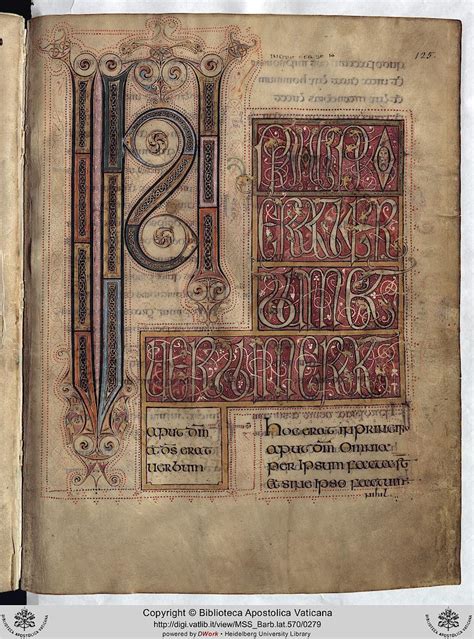 125
IN
ERAT UER
BUM ET
UERBUM ERAT
apud dm̄
& ds̄ erat
uerbum
Hoc erat in principio
apud dm̄ Omnia
per ipsum facta st̄
& sine ipso factum
nihil
Copyright © Biblioteca Apostolica Vaticana
http://digi.vatlib.it/view/MSS_Barb.lat.570/0279
powered by DWork • Heidelberg University Library